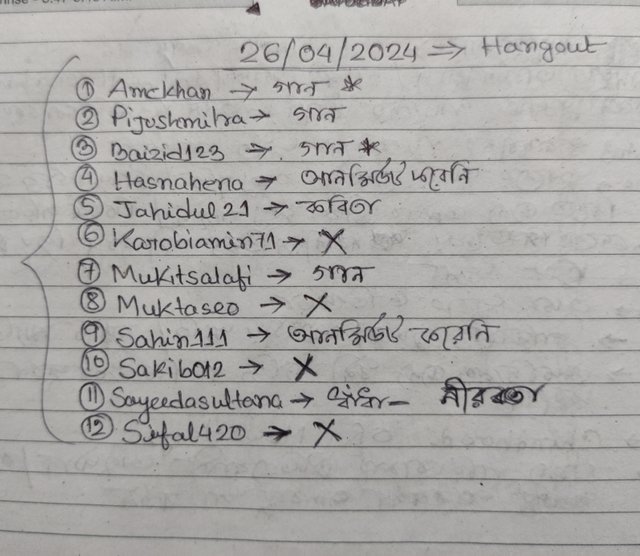 26/04/2024 ⇒ Hangout
① Amckhan → গান *
② Pijushmitra → গান
③ Baizid123 → গান *
④ Hasnahena → আনমিউট করেনি
⑤ Jahidul21 → কবিতা
⑥ Karobiamin71 → X
⑦ Mukitsalafi → গান
⑧ Muktaseo → X
⑨ Sahin111 → আনমিউট করেনি
⑩ Sakib012 → X
⑪ Sayeedasultana → ধাঁধা - নীরবতা
⑫ Sifal420 → X